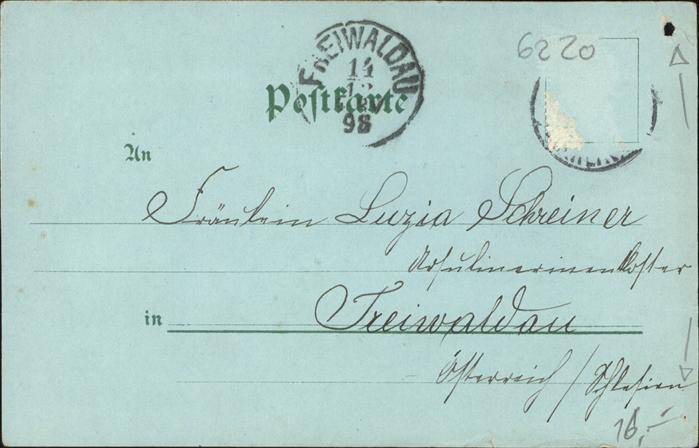 6220
FREIWALDAU
14
12
98
Postkarte
An
Fräulein Luzia Schreiner
Ursulinerinenkloster
in Freiwaldau
Österreich / Schlesien
16,-